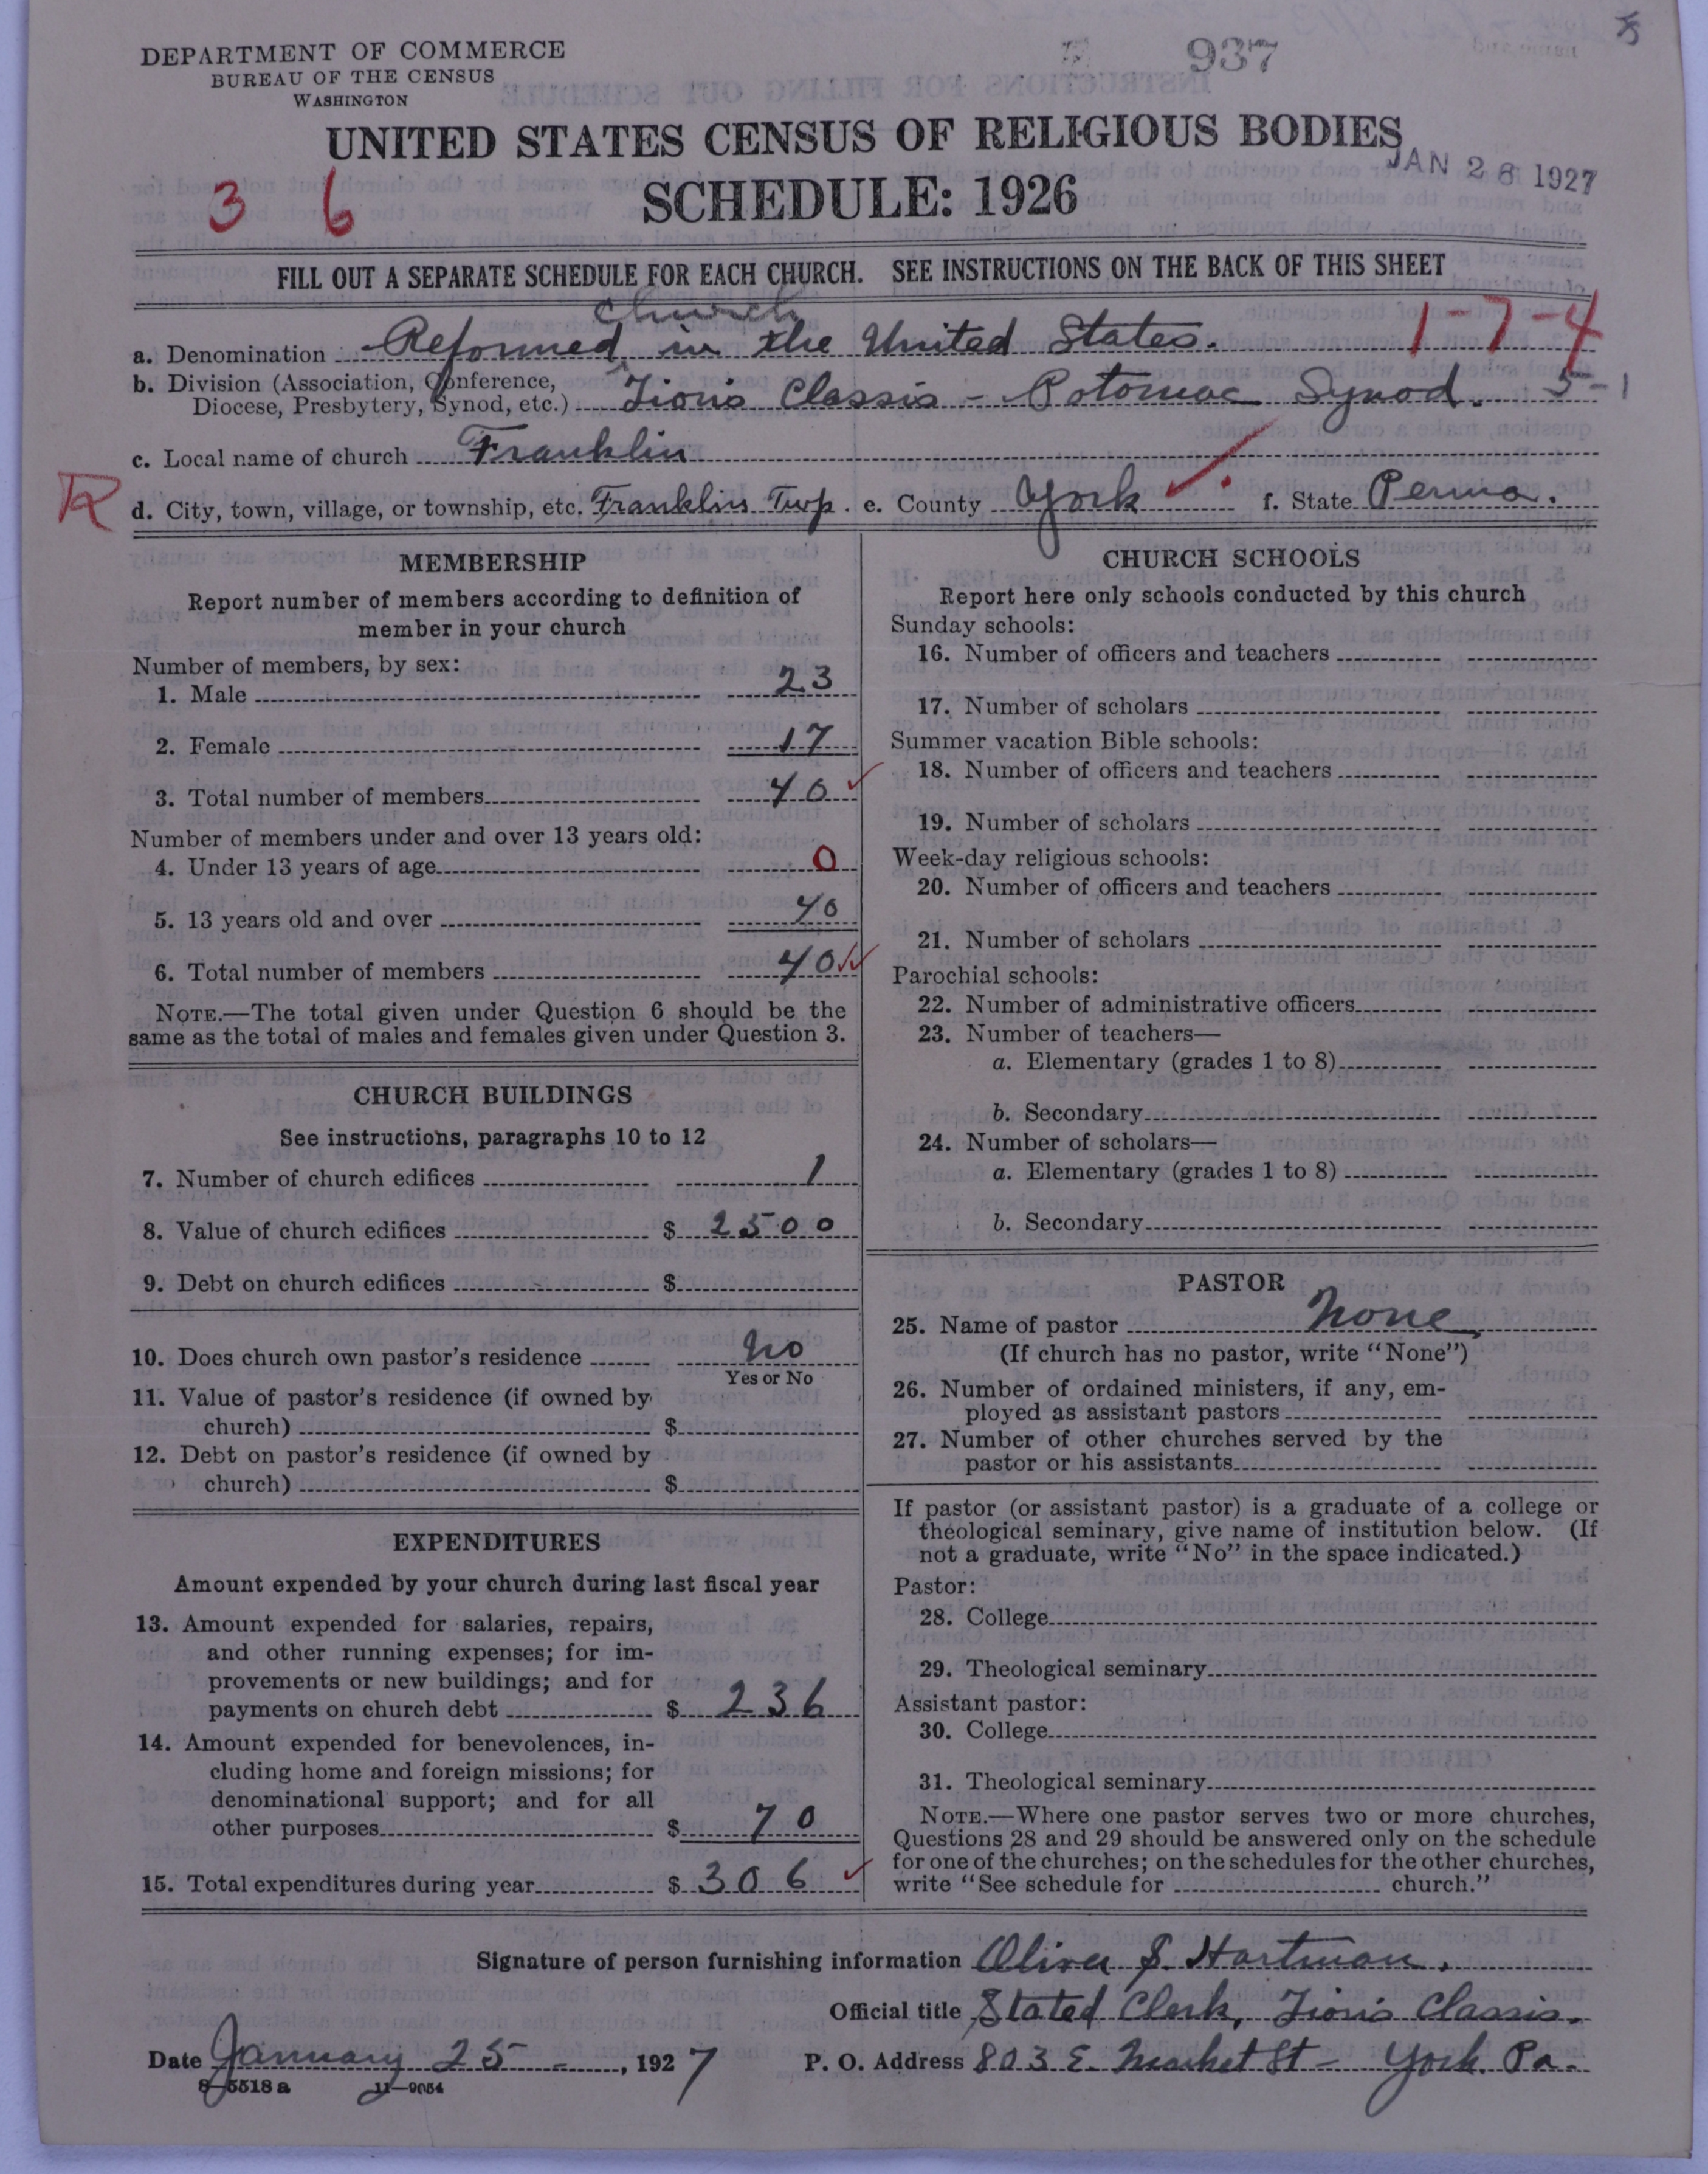 DEPARTMENT OF COMMERCE
BUREAU OF THE CENSUS
WASHINGTON
937
UNITED STATES CENSUS OF RELIGIOUS BODIES
JAN 28 1927
3 6
SCHEDULE: 1926
FILL OUT A SEPARATE SCHEDULE FOR EACH CHURCH. SEE INSTRUCTIONS ON THE BACK OF THIS SHEET
church
a. Denomination Reformed in the United States. 1-7-4
b. Division (Association, Conference,
Diocese, Presbytery, Synod, etc.) Zion's Classis - Potomac Synod. 5-1
c. Local name of church Franklin
R d. City, town, village, or township, etc. Franklin Twp. e. County York f. State Penna.
MEMBERSHIP
Report number of members according to definition of
member in your church
Number of members, by sex:
1. Male 23
2. Female 17
3. Total number of members 40
Number of members under and over 13 years old:
4. Under 13 years of age 0
5. 13 years old and over 40
6. Total number of members 40
NOTE.—The total given under Question 6 should be the
same as the total of males and females given under Question 3.
CHURCH BUILDINGS
See instructions, paragraphs 10 to 12
7. Number of church edifices 1
8. Value of church edifices $ 2500
9. Debt on church edifices $
10. Does church own pastor's residence no
Yes or No
11. Value of pastor's residence (if owned by
church) $
12. Debt on pastor's residence (if owned by
church) $
EXPENDITURES
Amount expended by your church during last fiscal year
13. Amount expended for salaries, repairs,
and other running expenses; for im-
provements or new buildings; and for
payments on church debt $ 236
14. Amount expended for benevolences, in-
cluding home and foreign missions; for
denominational support; and for all
other purposes $ 70
15. Total expenditures during year $ 306
CHURCH SCHOOLS
Report here only schools conducted by this church
Sunday schools:
16. Number of officers and teachers
17. Number of scholars
Summer vacation Bible schools:
18. Number of officers and teachers
19. Number of scholars
Week-day religious schools:
20. Number of officers and teachers
21. Number of scholars
Parochial schools:
22. Number of administrative officers
23. Number of teachers—
a. Elementary (grades 1 to 8)
b. Secondary
24. Number of scholars—
a. Elementary (grades 1 to 8)
b. Secondary
PASTOR
25. Name of pastor None
(If church has no pastor, write "None")
26. Number of ordained ministers, if any, em-
ployed as assistant pastors
27. Number of other churches served by the
pastor or his assistants
If pastor (or assistant pastor) is a graduate of a college or
theological seminary, give name of institution below. (If
not a graduate, write "No" in the space indicated.)
Pastor:
28. College
29. Theological seminary
Assistant pastor:
30. College
31. Theological seminary
NOTE.—Where one pastor serves two or more churches,
Questions 28 and 29 should be answered only on the schedule
for one of the churches; on the schedules for the other churches,
write "See schedule for church."
Signature of person furnishing information Oliver S. Hartman.
Official title Stated Clerk, Zion's Classis.
Date January 25 , 1927 P. O. Address 803 E. Market St - York Pa.
8-5518 a 11-9054